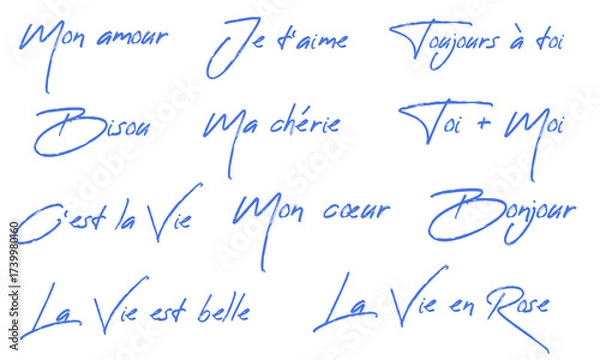 Mon amour
Je t'aime
Toujours à toi
Bisou
Ma chérie
Toi + Moi
C'est la Vie
Mon cœur
Bonjour
La Vie est belle
La Vie en Rose
Adobe Stock | #1739980160